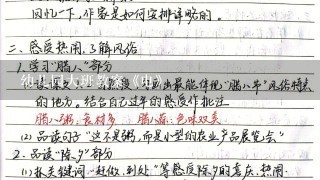 回忆一下,作家是如何安排详略的。
二、感受热闹,了解风俗
1.学习“腊八”部分
最能体现“腊八节”风俗特点
的地方。结合自己过年的感受作批注
腊八粥:食材多 腊八蒜:色味双美
(2)品读句子“这不是粥,而是小型的农业产品展览会”
2.品读“除夕”部分
(1)抓关键词“赶做、到处”等感受除夕的喜庆、热闹
幼儿园大班教案《